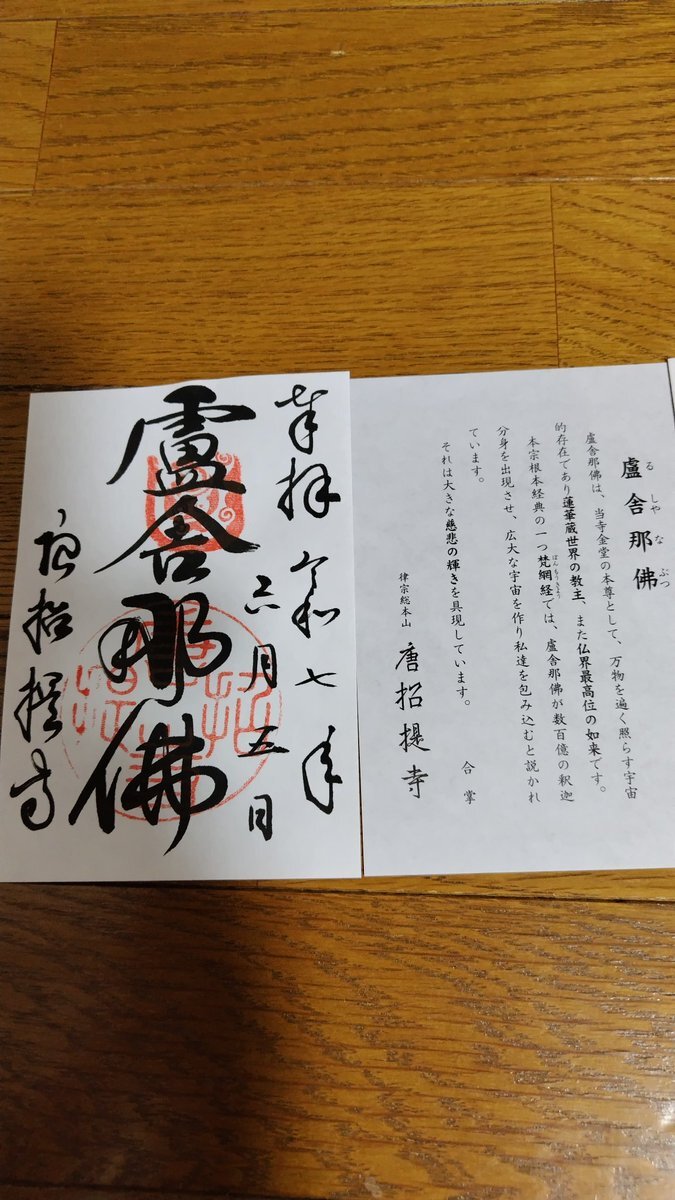 盧舎那佛
るしゃなぶつ
盧舎那佛は、当寺金堂の本尊として、万物を遍く照らす宇宙
的存在であり蓮華蔵世界の教主、また仏界最高位の如来です。
本宗根本経典の一つ梵網経では、盧舎那佛が数百億の釈迦
ぼんもうきょう
分身を出現させ、広大な宇宙を作り私達を包み込むと説かれ
ています。
それは大きな慈悲の輝きを具現しています。
合掌
律宗総本山 唐招提寺
奉拝 令和七年
六月五日
盧舎那佛
唐招提寺